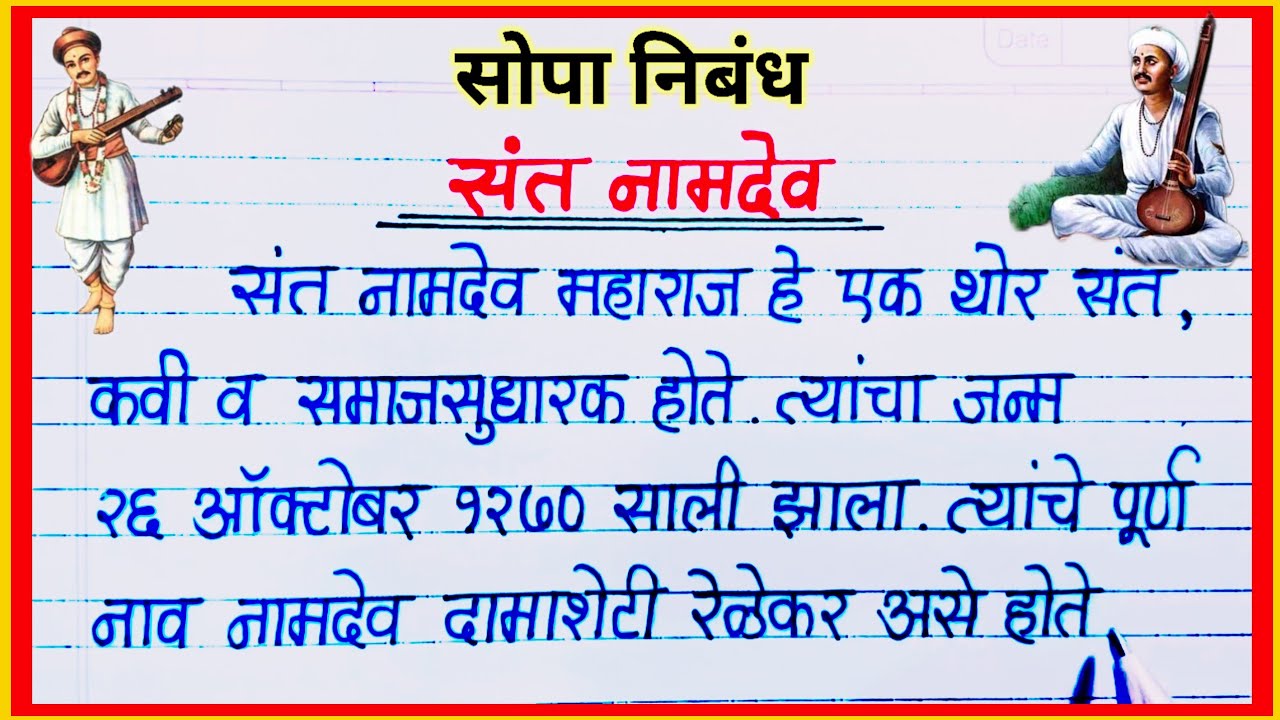 Data
सोपा निबंध
संत नामदेव
संत नामदेव महाराज हे एक थोर संत,
कवी व समाजसुधारक होते. त्यांचा जन्म
२६ ऑक्टोबर १२७० साली झाला. त्यांचे पूर्ण
नाव नामदेव दामाशेटी रेळेकर असे होते